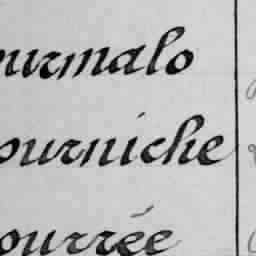 urmalo
ourniche
ourrée